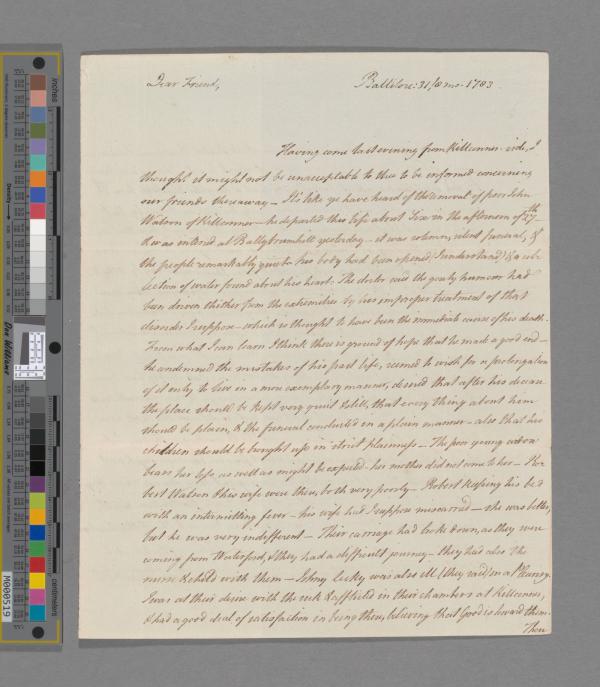 Dear Friend,
Ballitore: 31/8 mo. 1783
Having come last evening from Killconner-side, I
thought it might not be unacceptable to thee to be informed concerning
our friends thereaway — It's like ye have heard of the removal of poor John
Watson of Killconner — he departed this life about Six in the afternoon of 27th
& was interred at Ballybrumhill yesterday — it was solemn, silent funeral, &
the people remarkably quiet — his body had been opened, I understand, & a col-
lection of water found about his heart. The doctor said the gouty humour had
been driven thither from the extremities by his improper treatment of that
disorder I suppose — which is thought to have been the immediate cause of his death.
From what I can learn I think there is ground of hope that he made a good end —
he condemned the mistakes of his past life, seemed to wish for a prolongation
of it only to live in a more exemplary manner, desired that after his decease
the place should be kept very quiet & still, that every thing about him
should be plain, & the funeral conducted in a plain manner — also that his
children should be brought up in strict plainness — The poor young widow
bears her loss, as well as might be expected — her mother did not come to her — Ro-
bert Watson & his wife were there, both very poorly — Robert keeping his bed
with an intermitting fever — his wife had I suppose miscarried — she was better,
but he was very indifferent — Their carriage had broke down, as they were
coming from Waterford, & they had a difficult journey — they had also the
nurse & child with them — Johnny Lecky was also ill (they said) in a Pleurisy.
I was at their desire with the sick & afflicted in their chambers at Killconner,
& had a good deal of satisfaction in being there, believing that Good is toward them.
Thou
inches
centimeters
Density
Don Williams
M000519